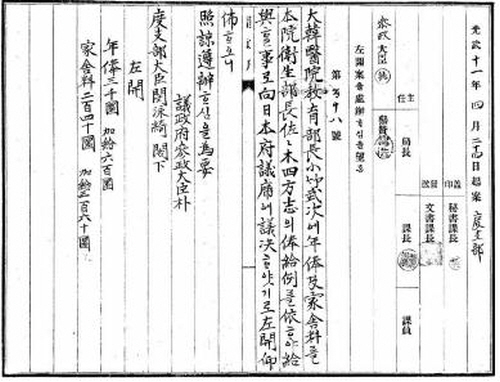 光武十一年 四月 二十四日起案 度支部
蓋印 秘書課長
發號 文書課長
主任 局長 課長 課員
參政大臣
第 九八 號
大韓醫院敎育部長小竹武次에年俸及家舍料를
本院衛生部長佐々木四方志의俸給例를依ᄒᆞ야給
與ᄒᆞᆯ事로向日本府議廟에議决ᄒᆞ얏기로左開仰
佈ᄒᆞ오니
照諒遵辦ᄒᆞ심을爲要
議政府參政大臣朴
度支部大臣閔泳綺 閣下
左開
年俸三千圜 加給六百圜
家舍料二百四十圜 加給三百六十圜